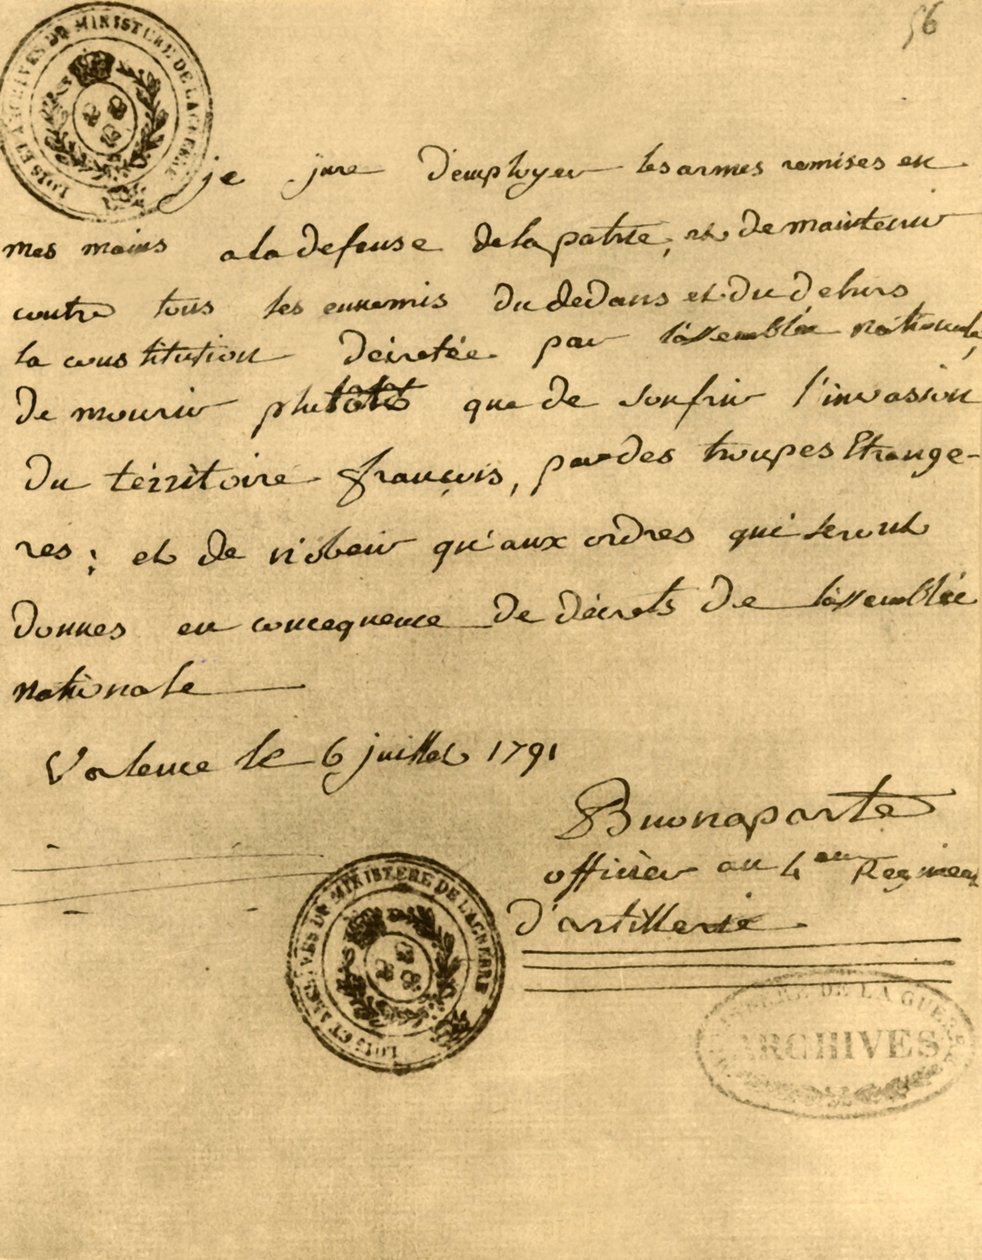 56
LOIS ET ARCHIVES DU MINISTERE DE LA GUERRE
je jure d'employer les armes remises en
mes mains a la defense de la patrie, et de maintenir
contre tous les ennemis du dedans et du dehors
la constitution décretée par l'assemblée nationale,
de mourir plutôt que de soufrir l'invasion
du térritoire français, par des troupes Etrange-
res; et de n'obeir qu'aux ordres qui seront
donnes en concequence de décrets de l'assemblée
nationale
Valence le 6 juillet 1791
Buonaparte
officier au 4eme Regiment
d'artillerie
LOIS ET ARCHIVES DU MINISTERE DE LA GUERRE
MINISTERE DE LA GUERRE
ARCHIVES